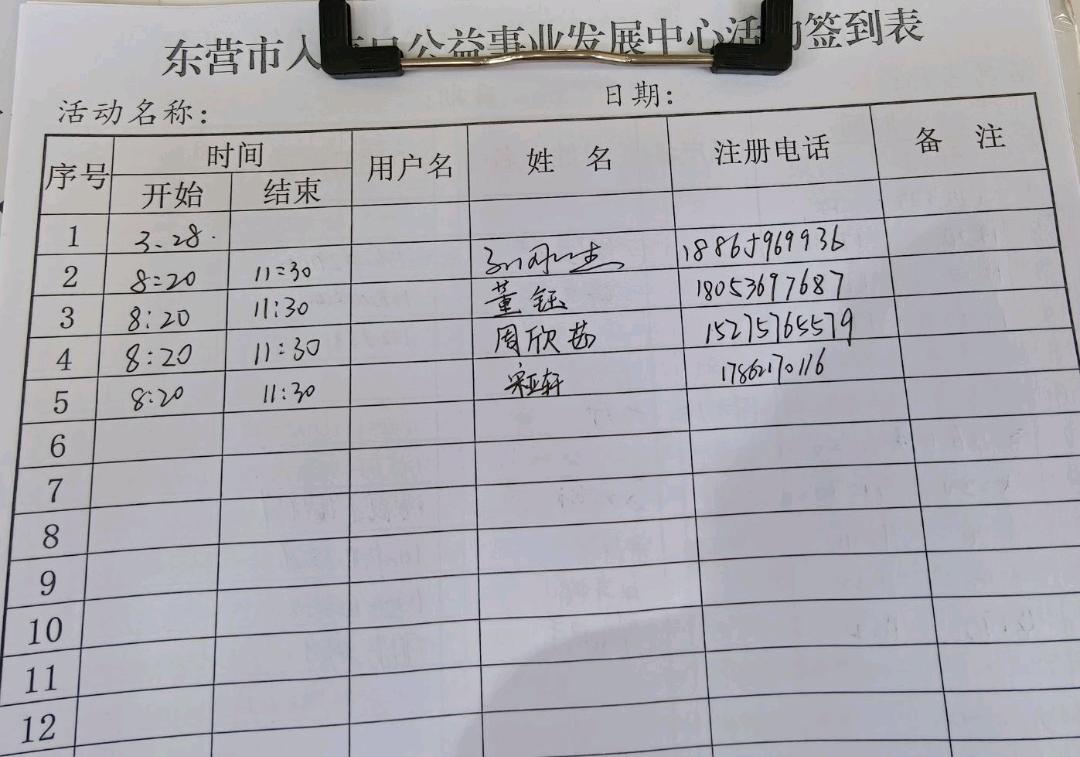 东营市人 公益事业发展中心活动签到表
活动名称： 日期：
序号 时间 用户名 姓 名 注册电话 备 注
开始 结束
1 3.28.
2 8:20 11:30 18865969936
3 8:20 11:30 董钰 18053697687
4 8:20 11:30 周欣茹 15275765579
5 8:20 11:30 宋亚轩 17862170116
6
7
8
9
10
11
12